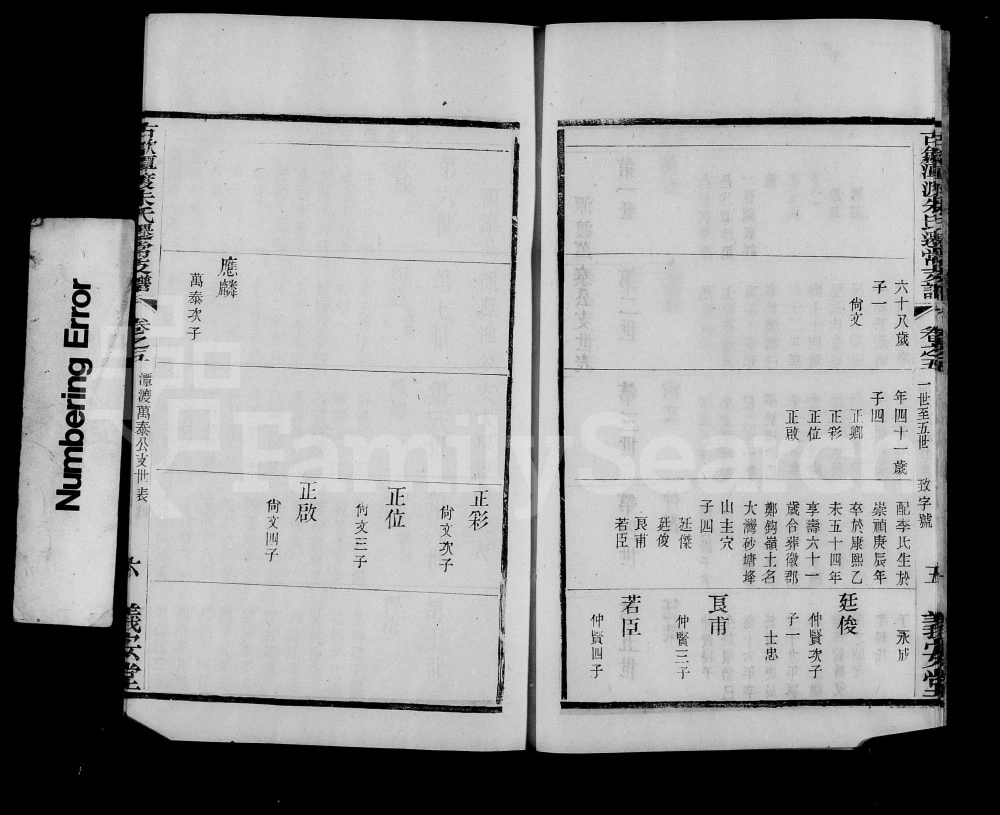 古歙潭渡朱氏遷常支譜
卷之五
一世至五世
致字號
五
義安堂
六十八歲
子一
尙文
年四十一歲
子四
正卿
正彩
正位
正啟
配李氏生於
崇禎庚辰年
卒於康熙乙
未五十四年
享壽六十一
歲合葬徽郡
鄭鈞嶺土名
大灣砂塘埄
山主穴
子四
廷傑
廷俊
良甫
若臣
子永成
廷俊
仲賢次子
子一
士忠
良甫
仲賢三子
若臣
仲賢四子
正彩
尙文次子
正位
尙文三子
正啟
尙文四子
應麟
萬泰次子
古歙潭渡朱氏遷常支譜
卷之五
潭渡萬泰公支世表
六
義安堂
Numbering Error
FamilySearch